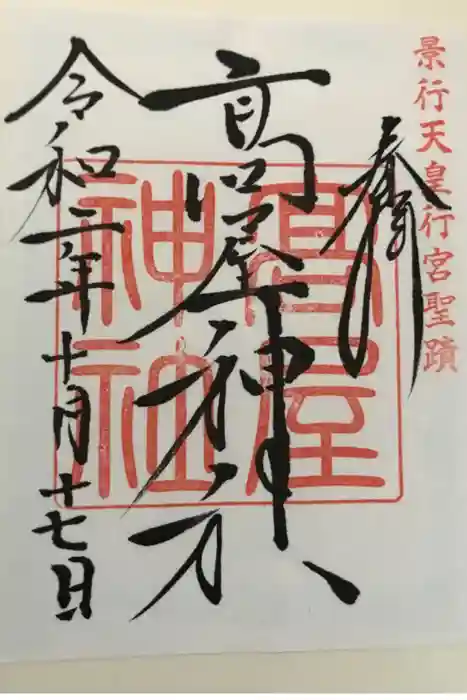 景行天皇行宮聖蹟
奉拝
高屋神社
高屋神社
令和二年十月十七日